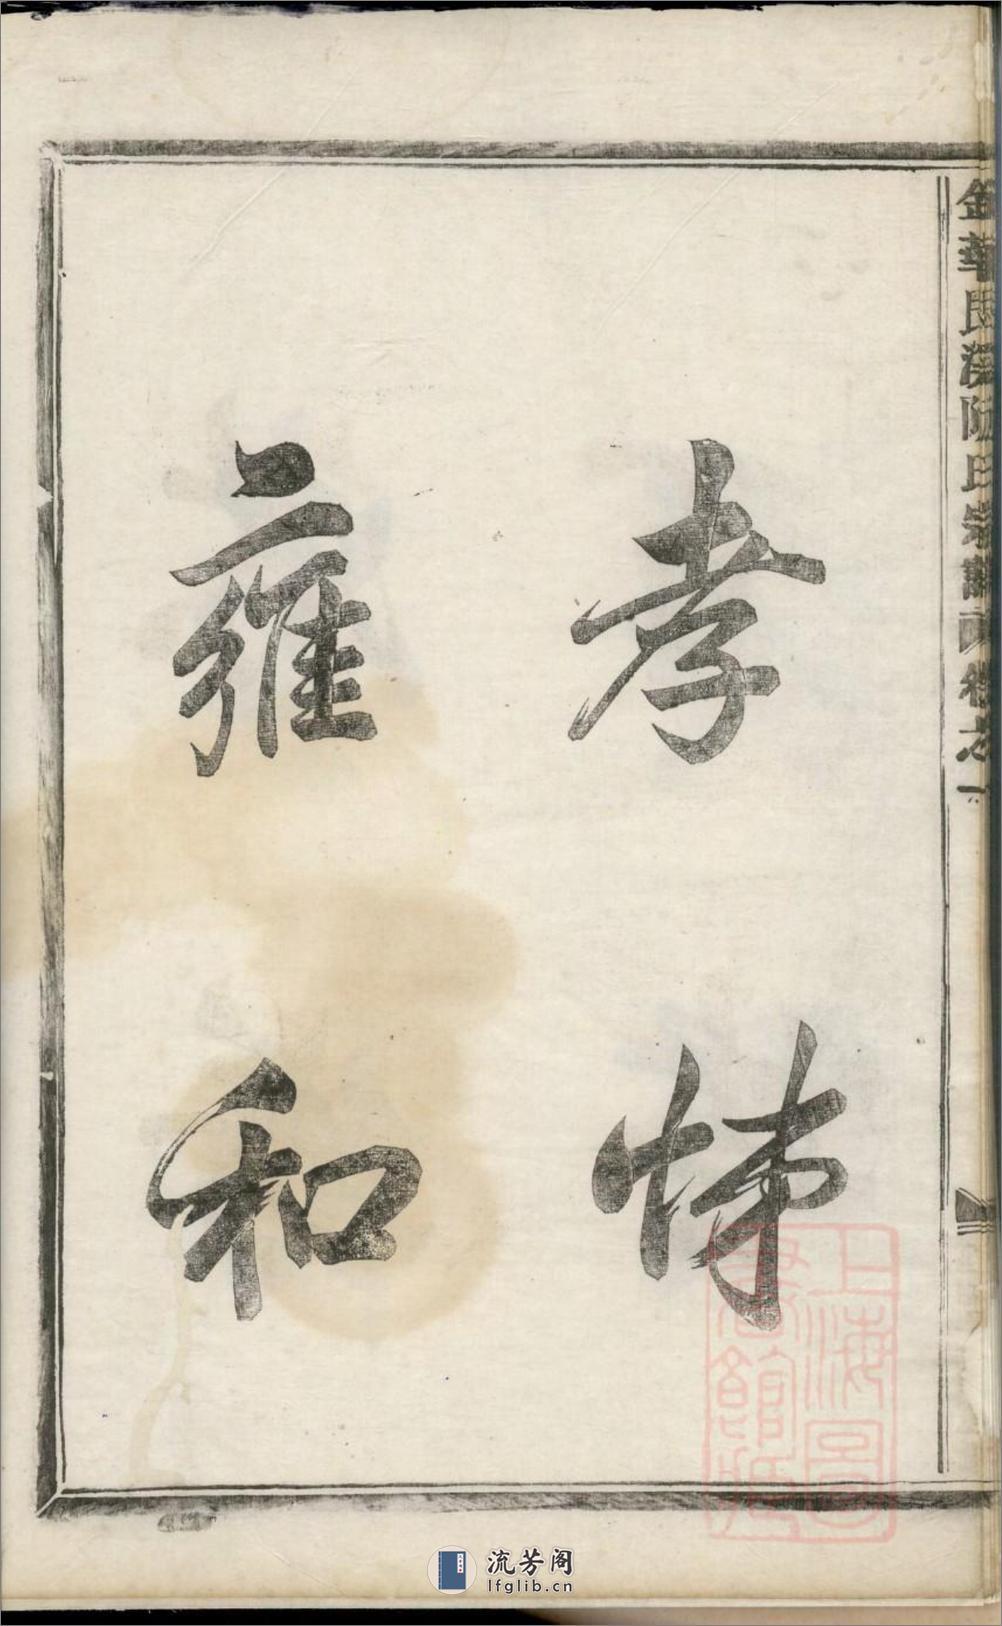 孝悌
雍和
金華長溪阮氏宗譜 卷之一
上海圖
書館藏
流芳阁
lfglib.cn